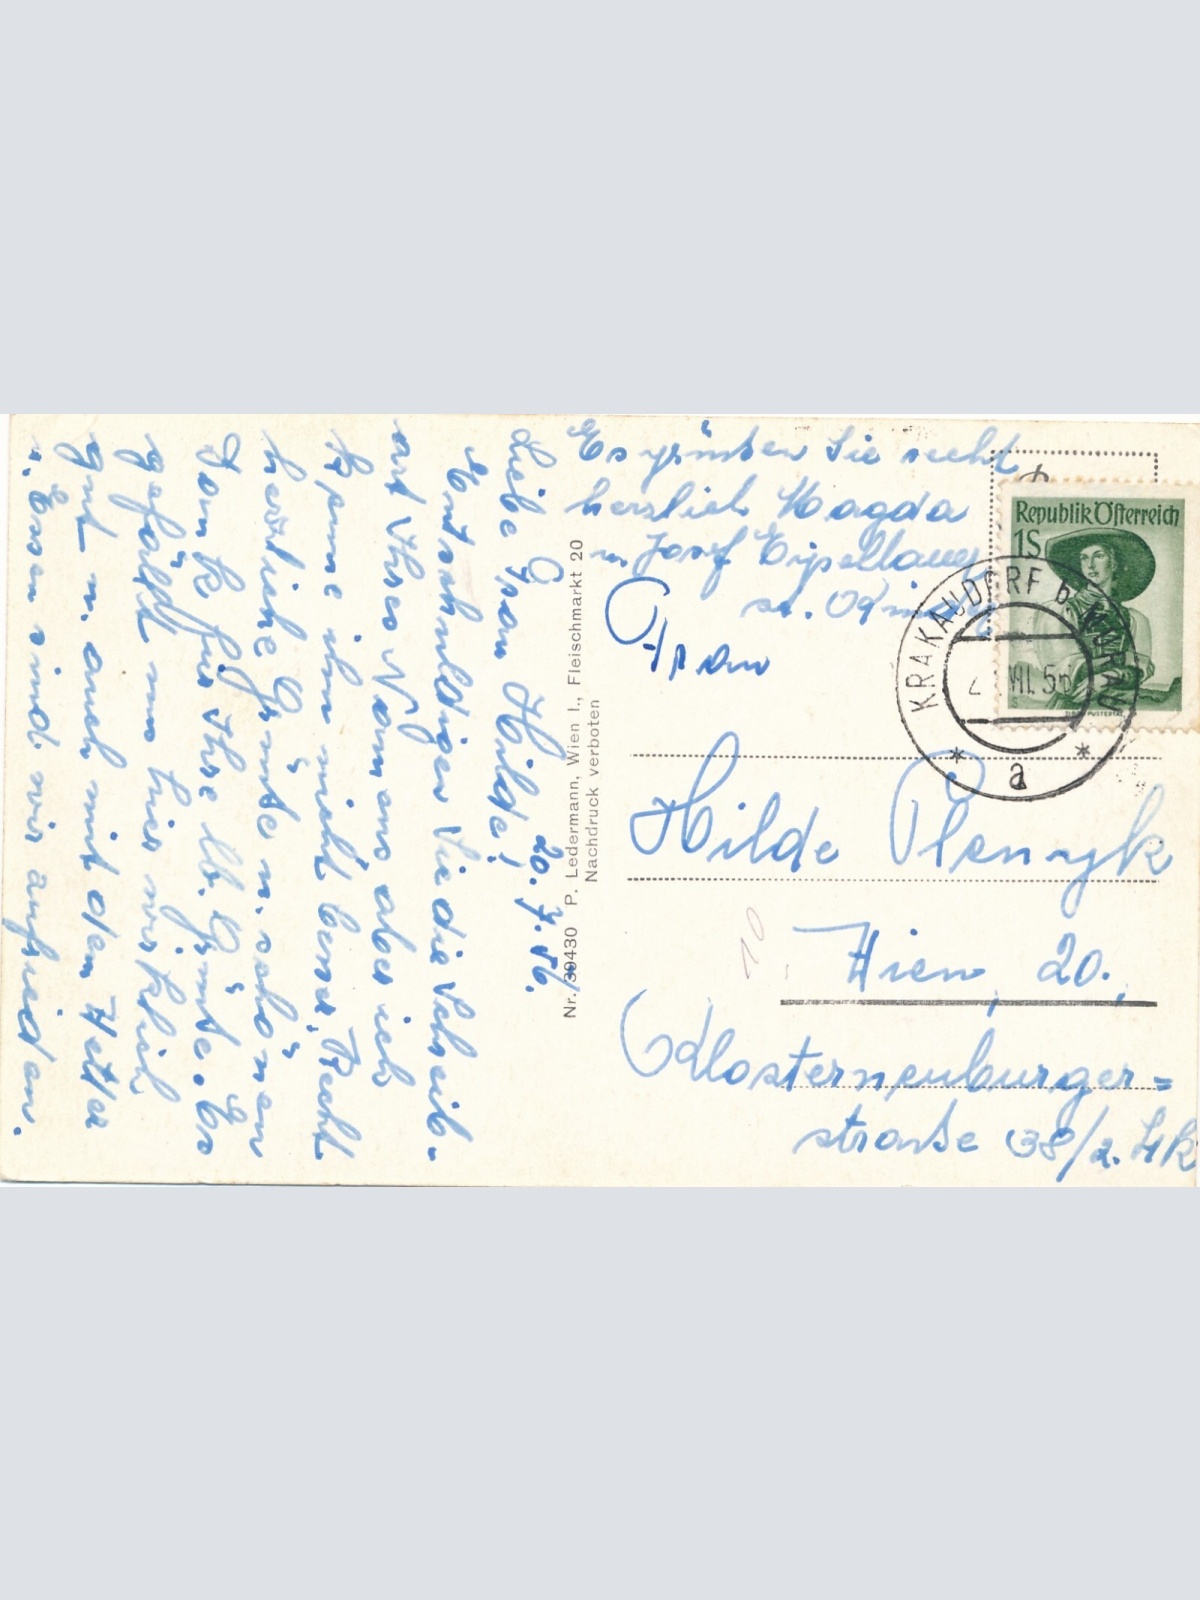 20. 7. 56.
Liebe Frau Hilde!
Entschuldigen Sie die Schreib-
art Ihres Namens aber ich
kenne ihn nicht genau. Recht
herzliche Grüße u. schönen
Dank für Ihre lb. Grüße. Es
gefällt uns hier wirklich
gut u. auch mit dem Wetter
u. Essen sind wir zufrieden.
Es grüßen Sie recht
herzlich Magda
u. Josef
Nr. 39430 P. Ledermann, Wien I., Fleischmarkt 20
Nachdruck verboten
Republik Österreich
1S
KRAKAUDORF b. MURAU
VII. 56
* a *
Frau
Hilde
Wien, 20.,
Klosterneuburger=
straße 38/2.